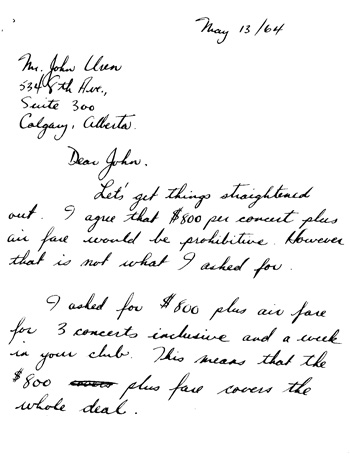 May 13/64
Mr. John Uren
534 8th Ave.,
Suite 300
Calgary, Alberta.
Dear John.
Let's get things straightened
out. I agree that $800 per concert plus
air fare would be prohibitive. However
that is not what I asked for.
I asked for $800 plus air fare
for 3 concerts inclusive and a week
in your club. This means that the
$800 covers plus fare covers the
whole deal.